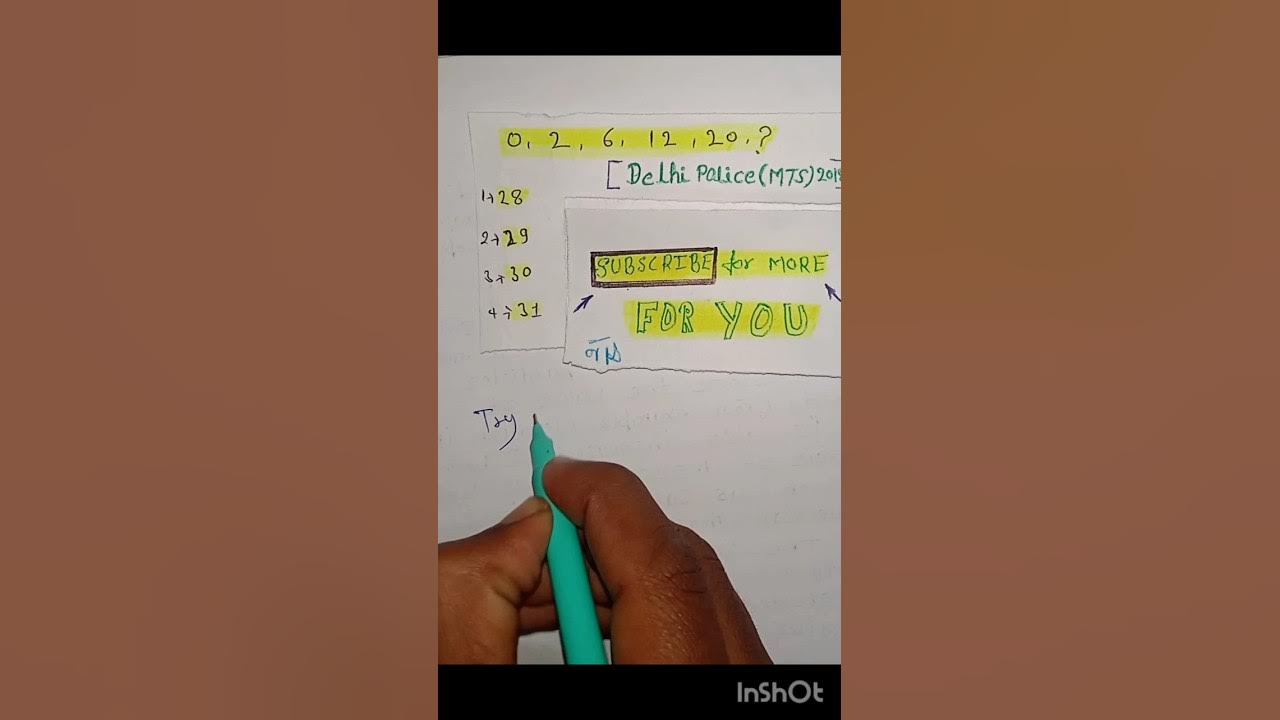 0, 2, 6, 12, 20, ?
[Delhi Police(MTS)2018
1→28
2→29
3→30
4→31
SUBSCRIBE for MORE
FOR YOU
Try
InShOt